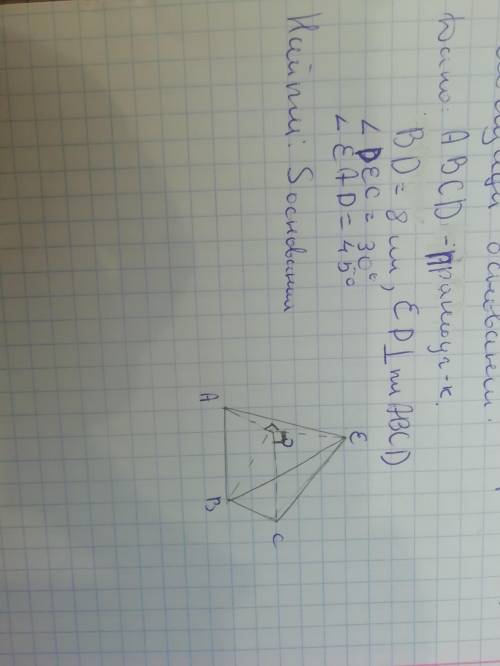 основания.
Дано: ABCD - прямоуг-к.
BD = 8 см, ED ⊥ пл ABCD
∠ DEC = 30°
∠ EAD = 45°
Найти: S основания
E
A
D
B
C